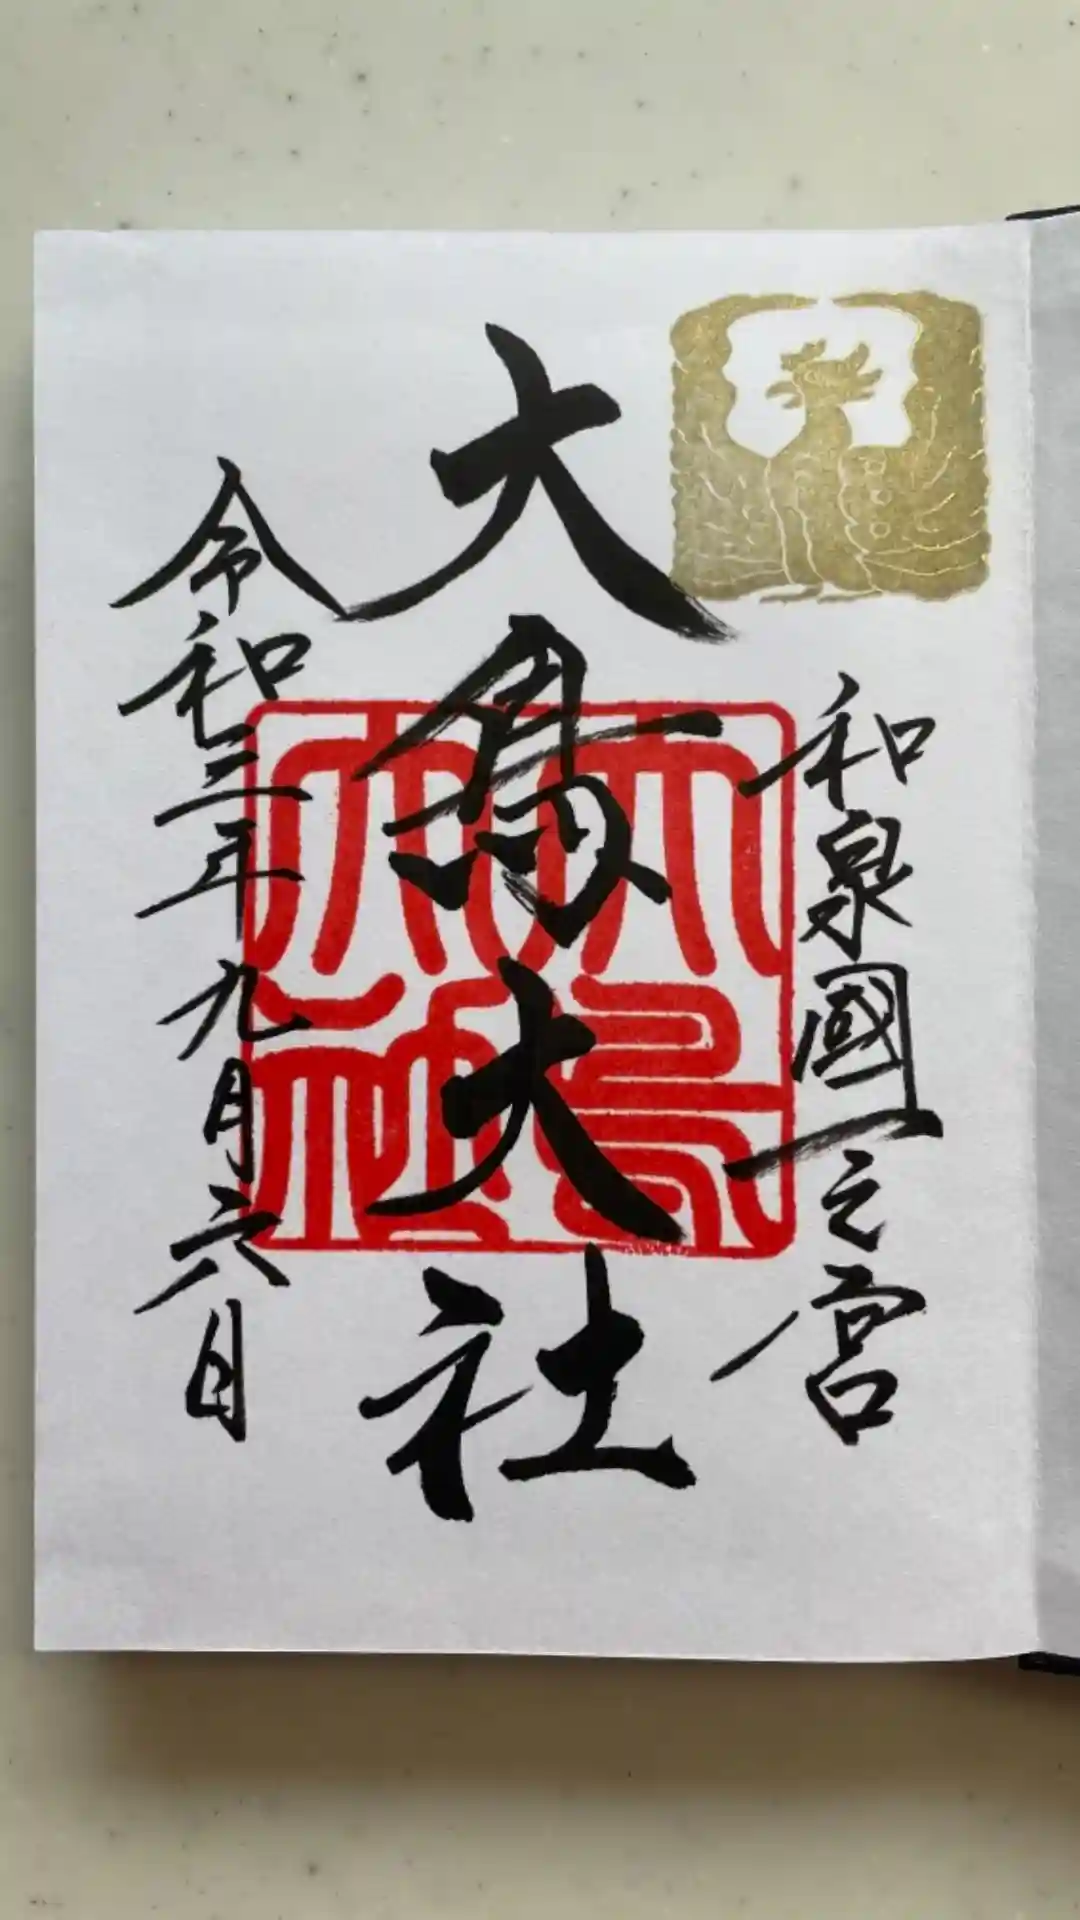 和泉國一之宮
大鳥大社
大鳥
大社
令和三年九月六日